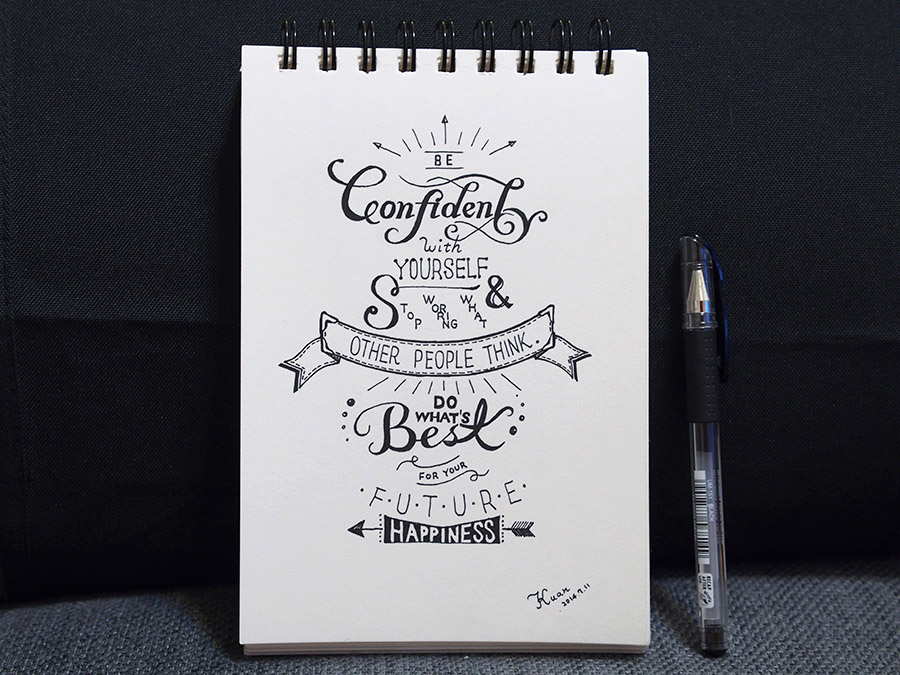 BE
Confident
with
YOURSELF
& STOP WORRING WHAT
OTHER PEOPLE THINK.
DO
WHAT'S
Best
FOR YOUR
·F·U·T·U·R·E·
HAPPINESS
Kuan
2014.7.11